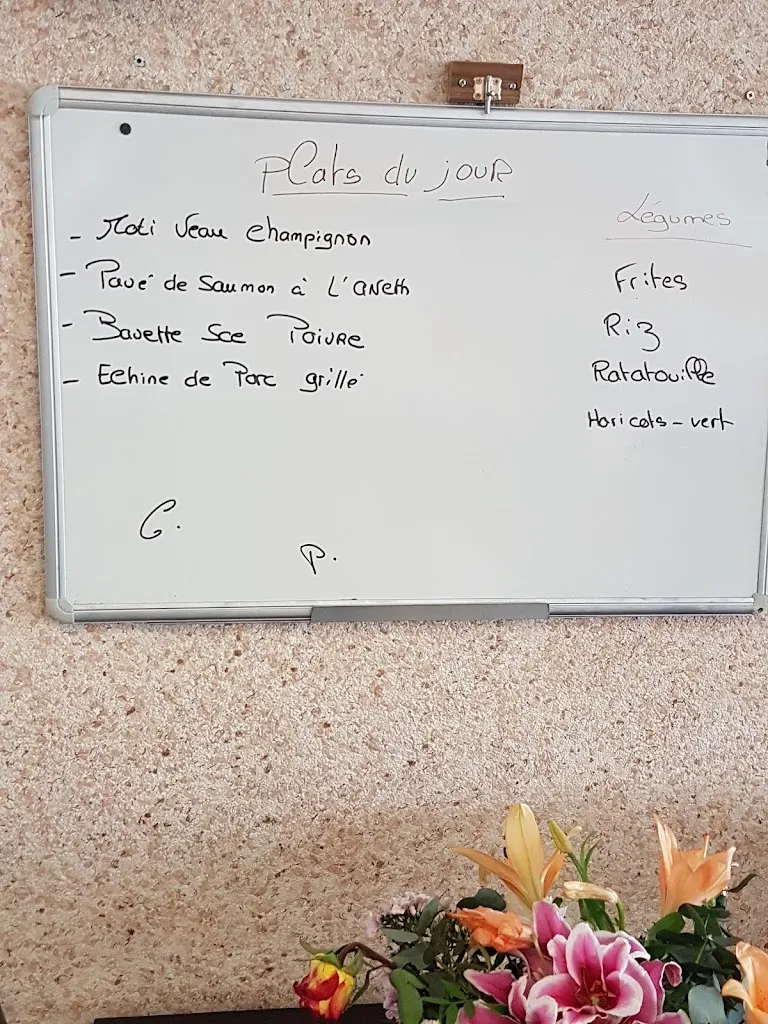 Plats du jour
- Roti Veau champignon
- Pavé de Saumon à L'aneth
- Bavette Sce Poivre
- Echine de Porc grillé
Légumes
Frites
Riz
Ratatouille
Haricots-vert
C.
P.